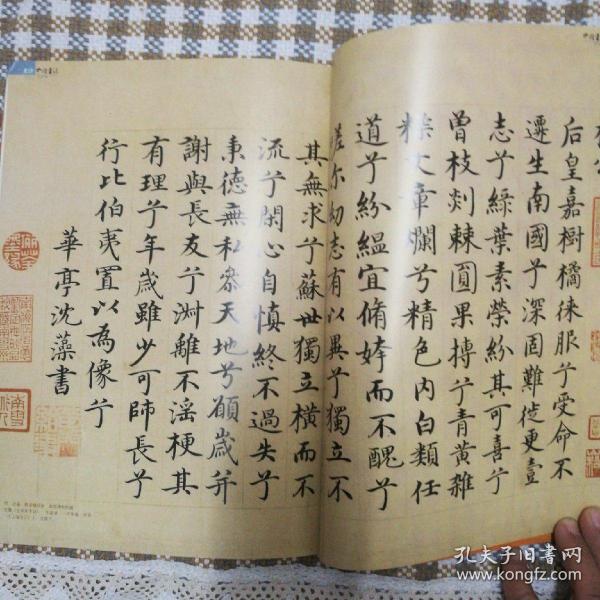 后皇嘉樹橘徠服兮受命不
遷生南國兮深固難徙更壹
志兮綠葉素榮紛其可喜兮
曾枝剡棘圓果摶兮青黃雜
糅文章爛兮精色内白類任
道兮紛緼宜脩姱而不醜兮
嗟尔幼志有以異兮獨立不
其無求兮蘇世獨立橫而不
流兮閑心自慎終不過失兮
秉德無私參天地兮願歲并
謝與長友兮淑離不滛梗其
有理兮年歲雖少可師長兮
行比伯夷置以為像兮
華亭沈藻書
孔夫子旧书网
www.kongfz.com